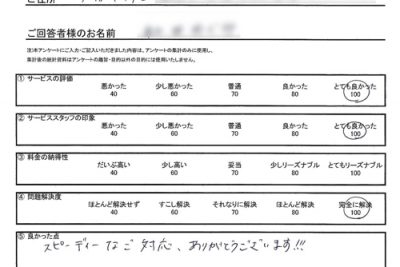 ご回答者様のお名前
注)本アンケートにご入力・ご記入いただきました内容は、アンケートの集計のみに使用し、
集計後の統計資料はアンケートの趣旨・目的以外の目的には使用いたしません。
① サービスの評価
悪かった 少し悪かった 普通 良かった とても良かった
40 60 70 80 100
② サービススタッフの印象
悪かった 少し悪かった 普通 良かった とても良かった
40 60 70 80 100
③ 料金の納得性
だいぶ高い 少し高い 妥当 少しリーズナブル とてもリーズナブル
40 60 70 80 100
④ 問題解決度
ほとんど解決せず すこし解決 それなりに解決 ほとんど解決 完全に解決
40 60 70 80 100
⑤ 良かった点
スピーディーなご対応、ありがとうございます!!!